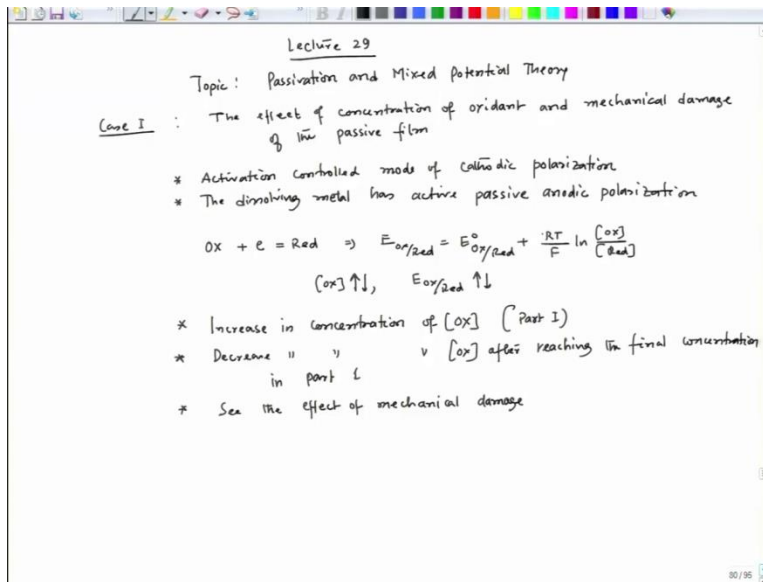 Lecture 29
Topic: Passivation and Mixed Potential Theory
Case I : The effect of concentration of oxidant and mechanical damage
of the passive film
* Activation controlled mode of cathodic polarization
* The dissolving metal has active passive anodic polarization
Ox + e = Red ⇒ E_{ox/Red} = E°_{Ox/Red} + RT/F ln [Ox]/[Red]
[Ox] ↑↓, E_{ox/Red} ↑↓
* Increase in concentration of [OX] (Part I)
* Decrease " " " [OX] after reaching the final concentration
in part 1
* See the effect of mechanical damage
80/95